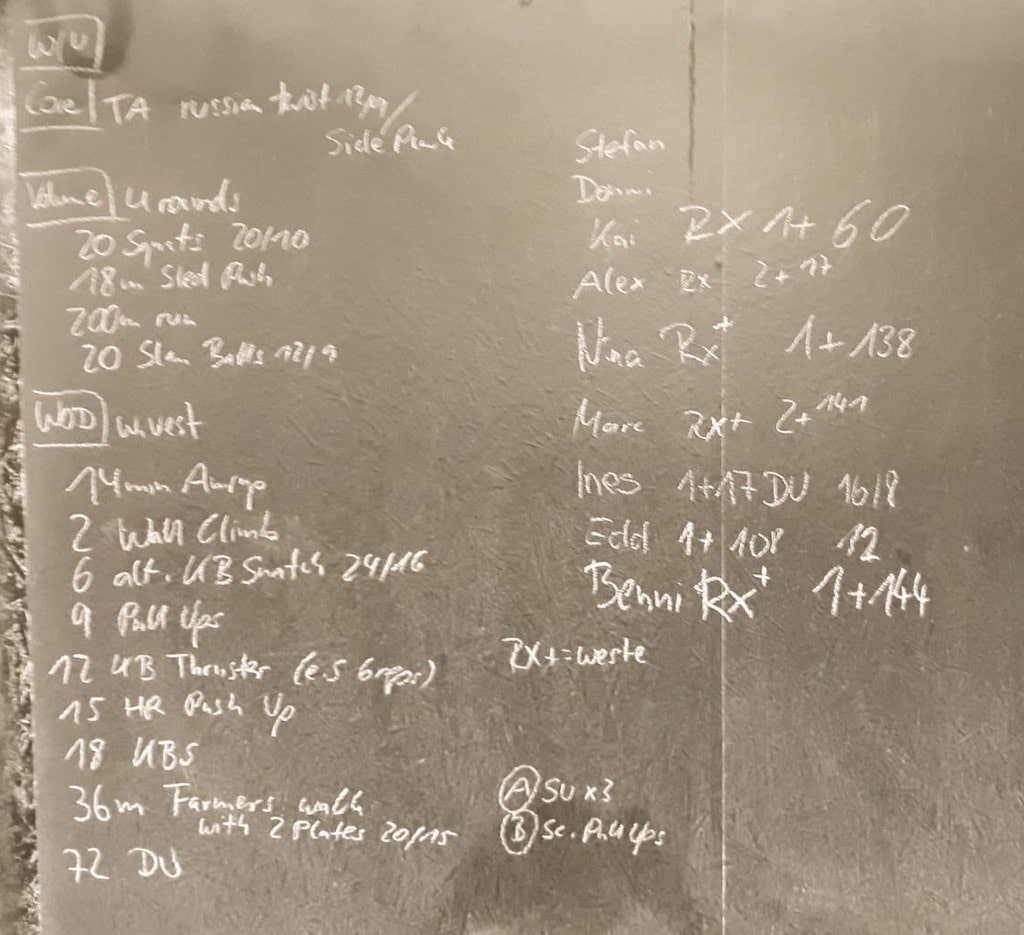 W/U
Core TA russian twist 12/9/
Side Plank
Volume 4 rounds
20 Squats 20/10
18m Sled Push
200m run
20 Slam Balls 12/9
WOD w. vest
14min Amrap
2 Wall Climb
6 alt. KB Snatch 24/16
9 Pull Ups
12 KB Thruster (e.S 6reps)
15 HR Push Up
18 KBS
36m Farmers walk
with 2 Plates 20/15
72 DU
Stefan
Donni
Kai RX 1+60
Alex RX 2+17
Nina Rx+ 1+138
Marc RX+ 2+141
Ines 1+17 DU 16/8
Edd 1+108 12
Benni RX+ 1+144
RX+=weste
A SU x3
B Sc. Pull Ups